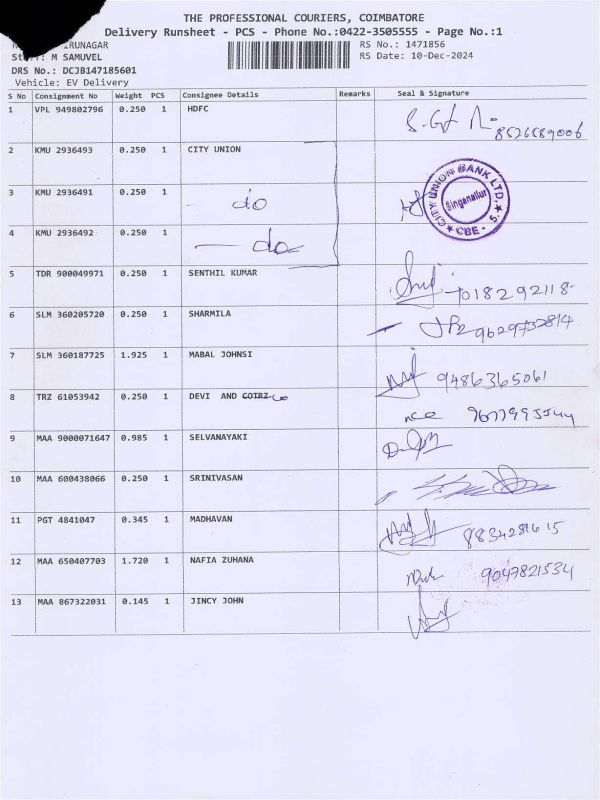 THE PROFESSIONAL COURIERS, COIMBATORE
Delivery Runsheet - PCS - Phone No.:0422-3505555 - Page No.:1
IRUNAGAR
RS No.: 1471856
M SAMUVEL
RS Date: 10-Dec-2024
DRS No.: DCJB147185601
Vehicle: EV Delivery
S No Consignment No Weight PCS Consignee Details Remarks Seal & Signature
1 VPL 949802796 0.250 1 HDFC
8526589006
2 KMU 2936493 0.250 1 CITY UNION
3 KMU 2936491 0.250 1 - do
CITY UNION BANK LTD.
Singanallur
CBE - 5.
4 KMU 2936492 0.250 1 - do
5 TDR 900049971 0.250 1 SENTHIL KUMAR
7018292118
6 SLM 360205720 0.250 1 SHARMILA
9629732814
7 SLM 360187725 1.925 1 MABAL JOHNSI
9486365061
8 TRZ 61053942 0.250 1 DEVI AND COTRZ
9 MAA 9000071647 0.985 1 SELVANAYAKI
10 MAA 600438066 0.250 1 SRINIVASAN
11 PGT 4841047 0.345 1 MADHAVAN
12 MAA 650407703 1.720 1 NAFIA ZUHANA
9047821534
13 MAA 867322031 0.145 1 JINCY JOHN